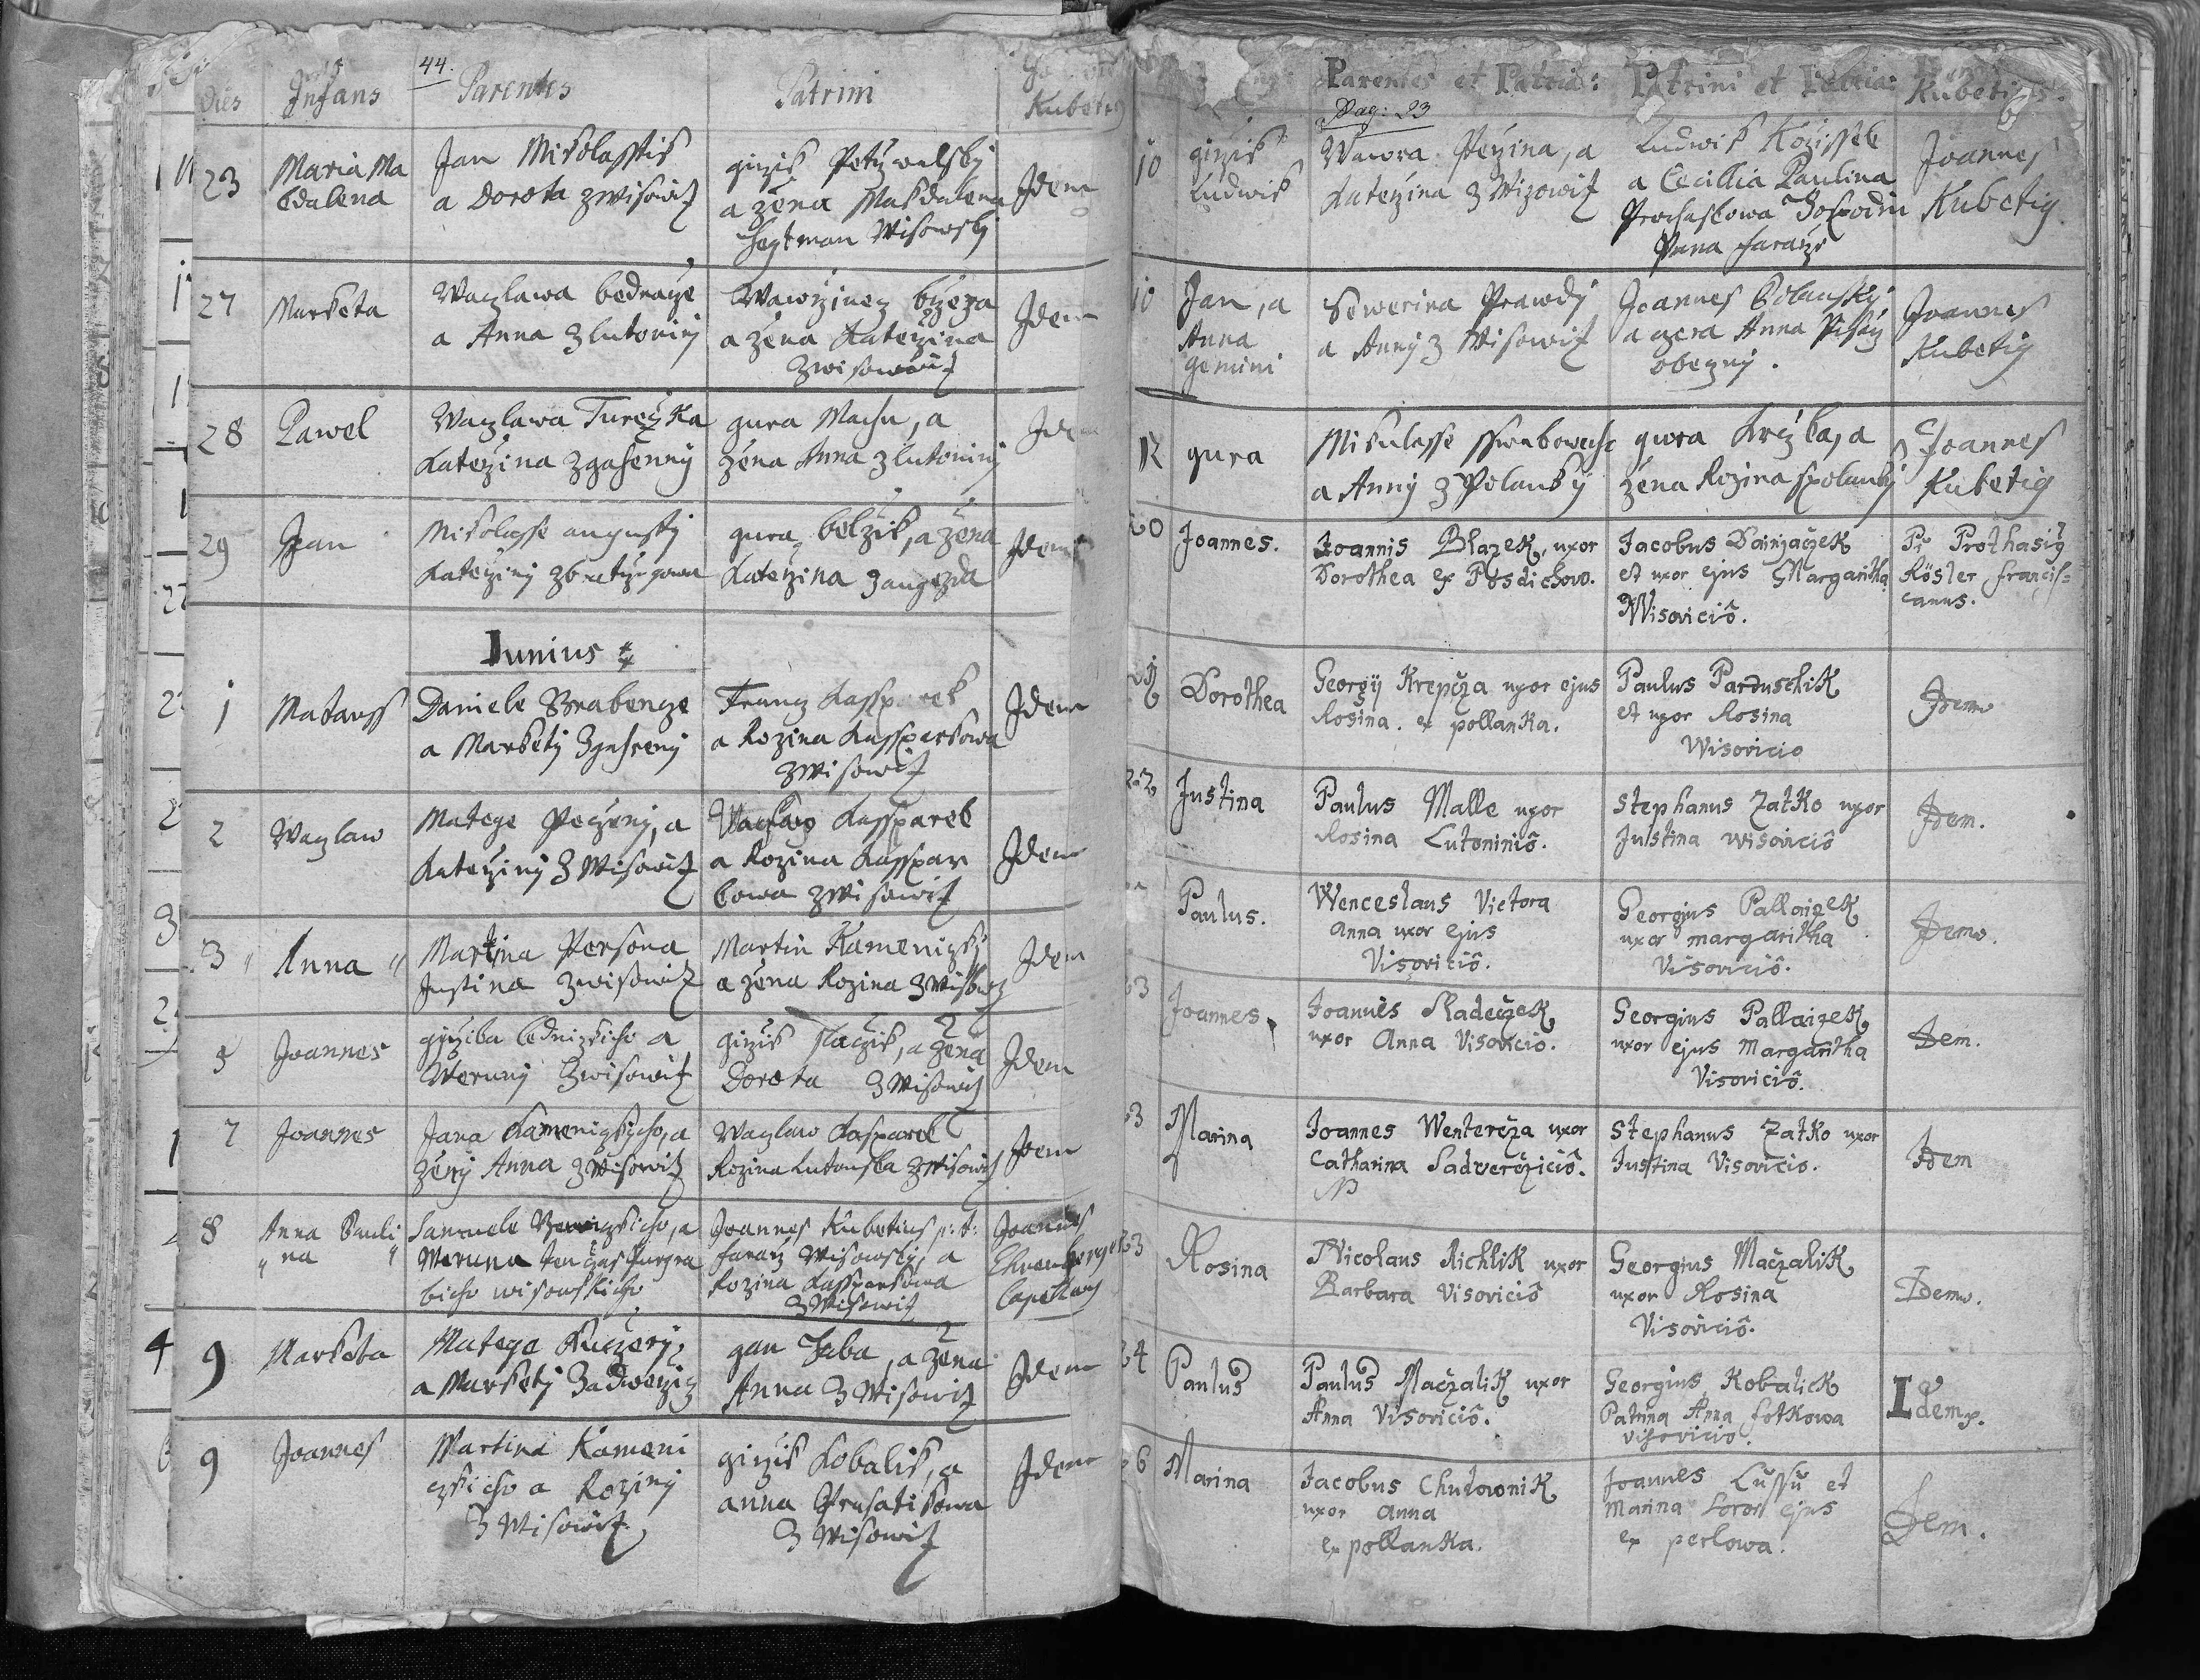 44.
Dies Infans Parentes Patrini
Kubetig
23 Maria Ma
gdalena
Jan Mikolasstik
a Dorota z Wisowitz
girzik
a žena Makdalena
Heytman Wisowsky
Idem
27 Marketa
Waczlawa bednarze
a Anna z lutoniny
Wawrzinez
a žena Katerzina
z wisowitz
Idem
28 Pawel
Waczlawa Tureczka
Katerzina z gasenny
gura Machu, a
žena Anna z lutoniny
Idem
29 Jan
Mikolasse augusty
Katerziny
gura belžik, a žena
Katerzina z augezda
Idem
Iunius
1 Matauss
Daniele Brabenze
a Markety z gasreny
Frantz Kassparek
a Rozina Kassparkowa
z Wisowitz
Idem
2 Waczlaw
Matege Peczeny, a
Katerziny z Wisowitz
Waczlaw Kassparek
a Rozina Kasspar
kowa z Wisowitz
Idem
3 Anna
Martina Persona
Justina z wisowitz
Martin Kamenizky
a žena Rozina z Wisowicz
Idem
5 Joannes
girzika lednizkiho a
Weruny z wisowitz
girzik slaczik, a žena
Dorota z Wisowicz
Idem
7 Joannes
Jana Kamenizkyho, a
ženy Anna z Wisowitz
Waczlaw Kasparek
Rozina Lutonska z Wisowicz
Idem
8 Anna Pauli
na
Samuele a
Weruna ten czas Purgra
biho wisowskiho
Joannes Kubetius p: t:
fararz Wisowsky, a
Rozina Kassparkowa
z Wisowitz
Joannes
Ehrenberger
Capellan
9 Marketa
Matege Kuczery,
a Markety z adwerzicz
gan Jaba, a žena
Anna z Wisowitz
Idem
9 Joannes
Martina Kameni
czkiho a Roziny
z Wisowitz
girzik Kobalik, a
anna Prusatikowa
z Wisowitz
Idem
Parentes et Patria: Patrini et Patria:
Kubetig
Pag: 23
10 girzik
Ludwik
Wawra Perzina, a
Katerzina z Wizowitz
Ludwik Kozissek
a Cecillia Paulina
Prochaskowa Hospodin
Pana fararze
Joannes
Kubetig
10 Jan, a
Anna
gemini
Sewerina Prawdy
a Anny z Wisowitz
Joannes Polansky
a czera Anna Pisarz
obeczny.
Joannes
Kubetig
12 gura
Mikulasse
a Anny z Polanky
gura Krczka, a
žena Rozina z polanky
Joannes
Kubetig
20 Joannes.
Joannis Blazek, uxor
Dorothea ex Posdichow.
Jacobus Dainjaczek
et uxor ejus Margaritha
Wisoviciô.
Pr Prothasig
Röster francis=
canus.
Dorothea
Georgÿ Krepcza uxor ejus
Rosina. ex pollanka.
Paulus Parduschik
et uxor Rosina
Wisovicio
Idem
22 Justina
Paulus Malle uxor
Rosina Lutoniniô.
Stephanus Zatko uxor
Justina wisoviciô
Idem.
Paulus.
Wenceslaus Victora
Anna uxor ejus
Visoviciô.
Georgius Pallaizek
uxor margaritha
Visoviciô.
Idem.
23 Joannes
Joannes Sladeczek
uxor Anna Visovicio.
Georgius Pallaizek
uxor ejus Margaritha
Visoviciô.
Idem.
23 Marina
Joannes Wentercza uxor
Catharina Sadvercziciô.
NB
Stephanus Zatko uxor
Justina Visovicio.
Idem
23 Rosina
Nicolaus Richlik uxor
Barbara Visoviciô
Georgius Maczalik
uxor Rosina
Visoviciô.
Idem.
24 Paulus
Paulus Maczalik uxor
Anna Visoviciô.
Georgius Kobalick
Patrina Anna fotkowa
visovicio.
Idem.
26 Marina
Jacobus Chutownik
uxor Anna
ex pollanka.
Joannes Lussu et
Marina Soror ejus
ex perlowa.
Idem.